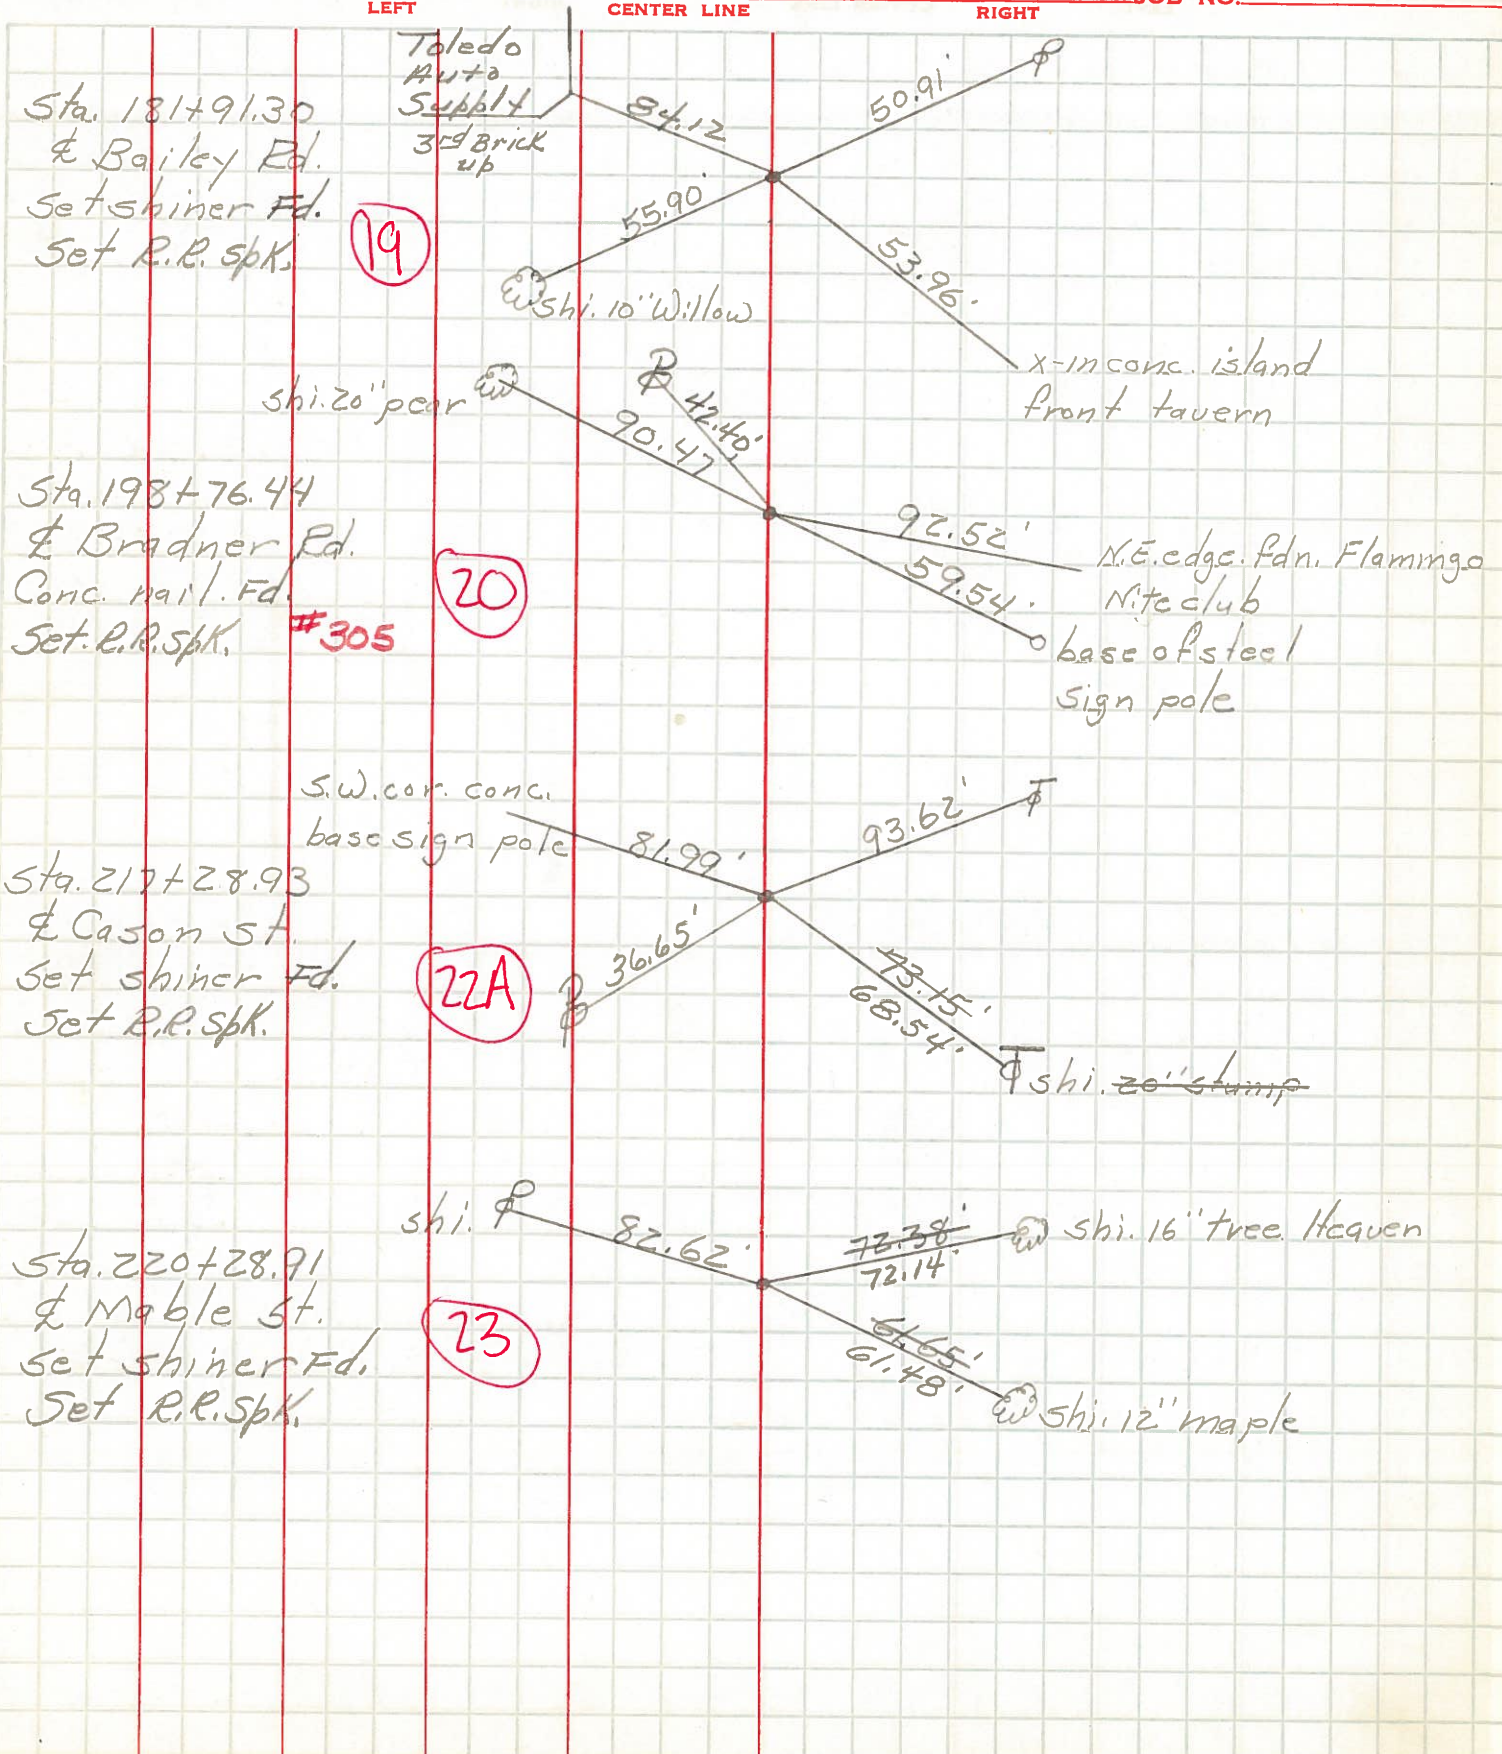 LEFT
CENTER LINE
RIGHT
JOB NO.
Toledo
Auto
Supply
3rd Brick
up
84.12
50.91'
Sta. 181+91.30
℄ Bailey Rd.
Set shiner Fd.
Set R.R. Spk.
19
55.90'
53.96'
shi. 10" Willow
x-in conc. island
front tavern
shi. 20" pear
42.40'
90.47
Sta. 198+76.44
℄ Bradner Rd.
Conc. nail. Fd.
Set. R.R. Spk.
#305
20
92.52'
59.54'
N.E. edge. fdn. Flamingo
Nite club
base of steel
sign pole
S.W. cor. conc.
base sign pole
81.99'
93.62'
Sta. 217+28.93
℄ Cason St.
Set shiner Fd.
Set R.R. Spk.
22A
36.65'
73.15'
68.54'
shi. 20" stump
shi.
82.62'
72.38'
72.14'
shi. 16" tree Heaven
Sta. 220+28.91
℄ Mable St.
Set shiner Fd.
Set R.R. Spk.
23
61.65'
61.48'
shi. 12" maple